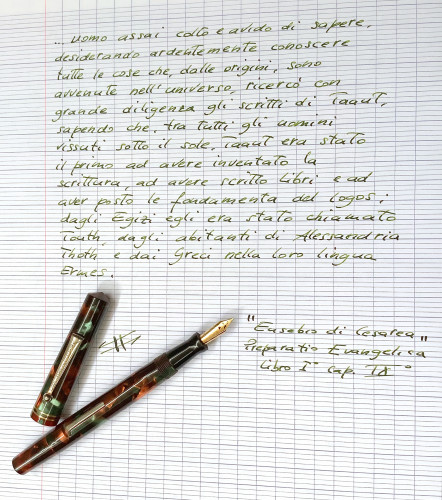 ... uomo assai colto e avido di sapere,
desiderando ardentemente conoscere
tutte le cose che, dalle origini, sono
avvenute nell'universo, ricercò con
grande diligenza gli scritti di Taaut,
sapendo che, tra tutti gli uomini
vissuti sotto il sole, Taaut era stato
il primo ad avere inventato la
scrittura, ad avere scritto libri e ad
aver posto le fondamenta del logos;
dagli Egizi egli era stato chiamato
Touth, dagli abitanti di Alessandria
Thoth e dai Greci nella loro lingua
Ermes.
"Eusebio di Cesarea"
Preparatio Evangelica
Libro I° cap. IX°